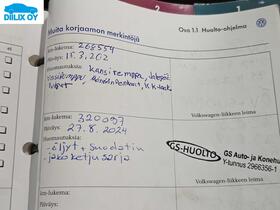 DIILIX OY
Osa 1.1 Huolto-ohjelma
Muita korjaamon merkintöjä
km-lukema: 268554
Päiväys:
Huomautuksia:
Volkswagen-liikkeen leima
km-lukema: 320097
Päiväys: 27.8.2024
Huomautuksia:
- öljyt + suodatin
- jakoketjusarja
GS-HUOLTO
GS Auto- ja Konehu
Y-tunnus 2966356-1
Volkswagen-liikkeen leima
km-lukema:
Päiväys: